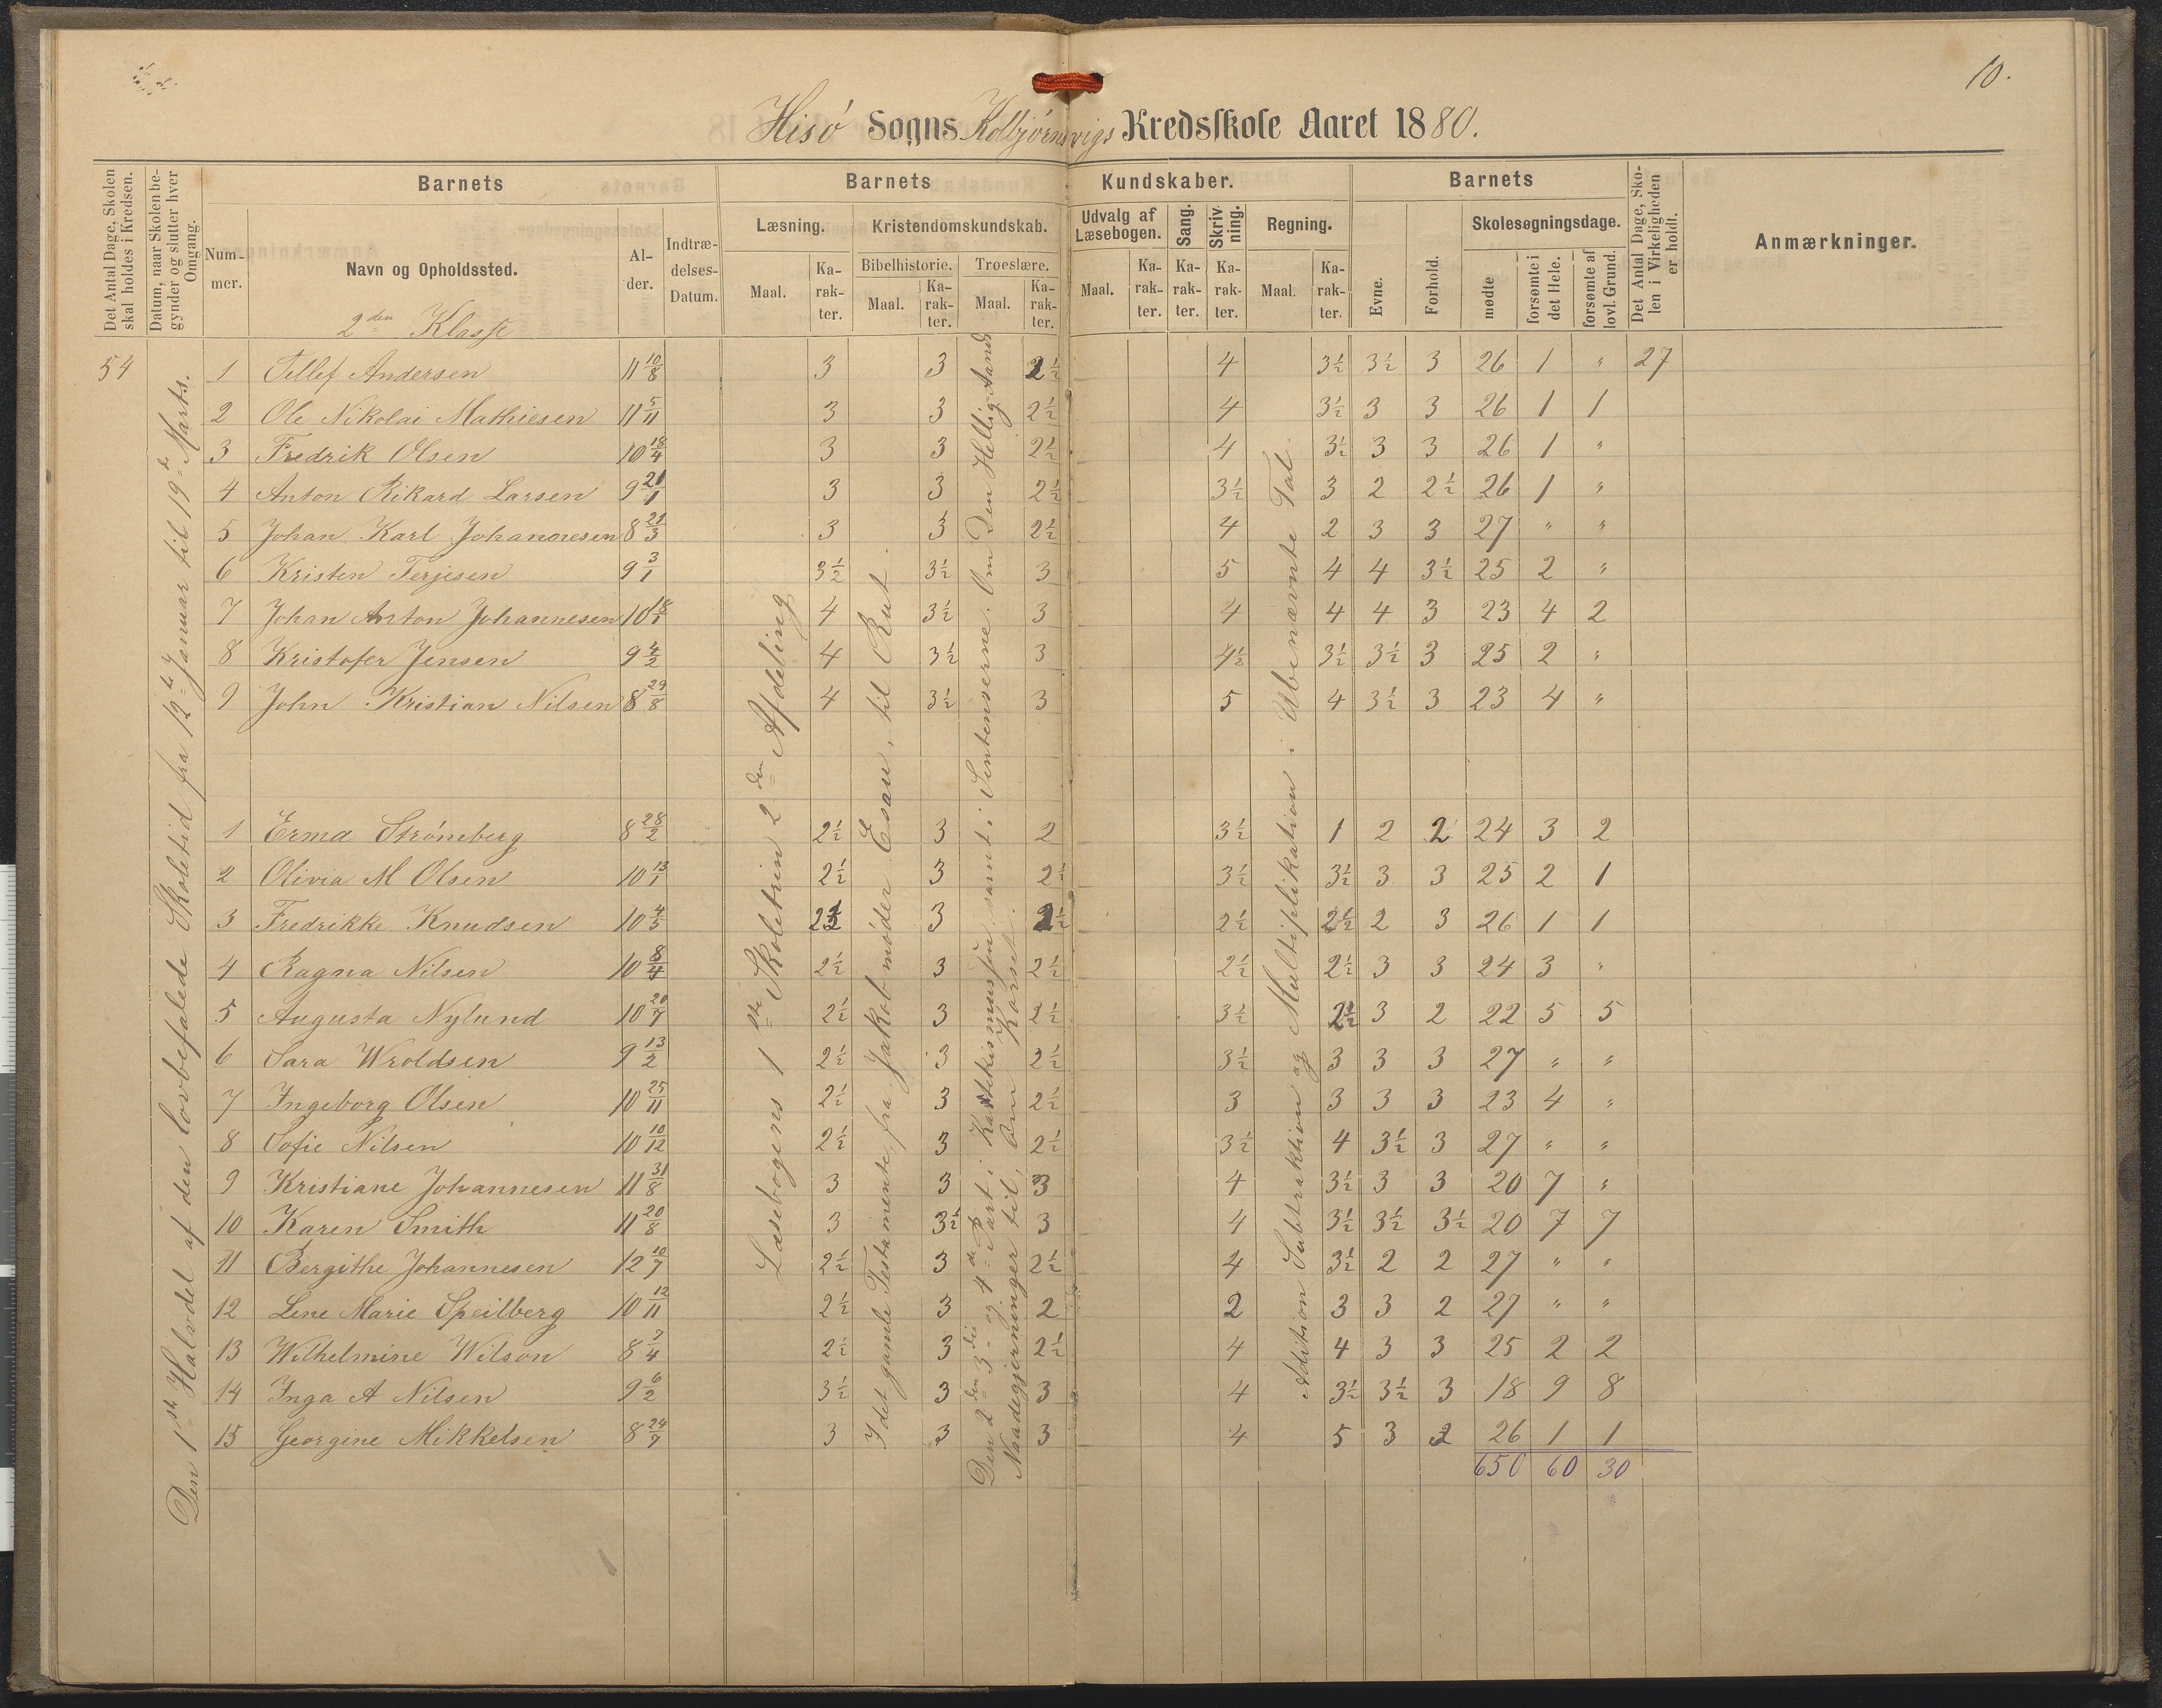 10.
Hisø Sogns Kolbjørnsvigs Kredsskole Aaret 1880.
Det Antal Dage, Skolen skal holdes i Kredsen.
Datum, naar Skolen begynder og slutter hver Omgang.
Barnets
Nummer.
Navn og Opholdssted.
Alder.
Indtrædelses-Datum.
Barnets Kundskaber.
Læsning.
Maal.
Karakter.
Kristendomskundskab.
Bibelhistorie.
Maal.
Karakter.
Troeslære.
Maal.
Karakter.
Udvalg af Læsebogen.
Maal.
Karakter.
Sang.
Karakter.
Skrivning.
Karakter.
Regning.
Maal.
Karakter.
Barnets
Evne.
Forhold.
Skolesøgningsdage.
mødte
forsømte i det Hele.
forsømte af lovl. Grund.
Det Antal Dage, Skolen i Virkeligheden er holdt.
Anmærkninger.
2den Klasse
54
Den 1ste Halvdel af den lovbefalede Skoletid fra 12te Januar til 19de Marts.
Læsebogens 1ste Skoletrin 2den Afdeling
I det gamle Testamente, fra Jakob møder Esau, til Rut.
Den 2den 3die og 4de Part i Katekismussen samt i Sentenserne. Om Den Hellig Aands
Naadegjerninger til, Om Korset.
Adition Subtraktion og Multiplikation i Ubenævnte Tal.
1 Tellef Andersen 11 10/8 3 3 2½ 4 3½ 3½ 3 26 1 " 27
2 Ole Nikolai Mathiesen 11 5/11 3 3 2½ 4 3½ 3 3 26 1 1
3 Fredrik Olsen 10 18/4 3 3 2½ 4 3½ 3 3 26 1 "
4 Anton Rikard Larsen 9 21/1 3 3 2½ 3½ 3 2 2½ 26 1 "
5 Johan Karl Johannesen 8 21/3 3 3 2½ 4 2 3 3 27 " "
6 Kristen Terjesen 9 3/1 3½ 3½ 3 5 4 4 3½ 25 2 "
7 Johan Anton Johannesen 10 4 3½ 3 4 4 4 3 23 4 2
8 Kristofer Jensen 9 4/2 4 3½ 3 4½ 3½ 3½ 3 25 2 "
9 John Kristian Nilsen 8 29/8 4 3½ 3 5 4 3½ 3 23 4 "
1 Erma Strömberg 8 28/2 2½ 3 2 3½ 1 2 2 24 3 2
2 Olivia M Olsen 10 13/1 2½ 3 2½ 3½ 3½ 3 3 25 2 1
3 Fredrikke Knudsen 10 4/5 2½ 3 2½ 2½ 2½ 2 3 26 1 1
4 Ragna Nilsen 10 8/4 2½ 3 2½ 2½ 2½ 3 3 24 3 "
5 Augusta Nylund 10 20/7 2½ 3 2½ 3½ 2½ 3 2 22 5 5
6 Sara Wroldsen 9 13/2 2½ 3 2½ 3½ 3 3 3 27 " "
7 Ingeborg Olsen 10 25/11 2½ 3 2½ 3 3 3 3 23 4 "
8 Sofie Nilsen 10 10/12 2½ 3 2½ 3½ 4 3½ 3 27 " "
9 Kristiane Johannesen 11 31/8 3 3 3 4 3½ 3 3 20 7 "
10 Karen Smith 11 20/8 3 3½ 3 4 3½ 3½ 3½ 20 7 7
11 Bergithe Johannesen 12 10/7 2½ 3 2½ 4 3½ 2 2 27 " "
12 Lene Marie Speilberg 10 12/11 2½ 3 2 2 3 3 2 27 " "
13 Wilhelmine Wilson 8 7/4 2½ 3 2½ 4 4 3 3 25 2 2
14 Inga A Nilsen 9 6/2 3½ 3 3 4 3½ 3½ 3 18 9 8
15 Georgine Mikkelsen 8 24/7 3 3 3 4 5 3 2 26 1 1
650 60 30